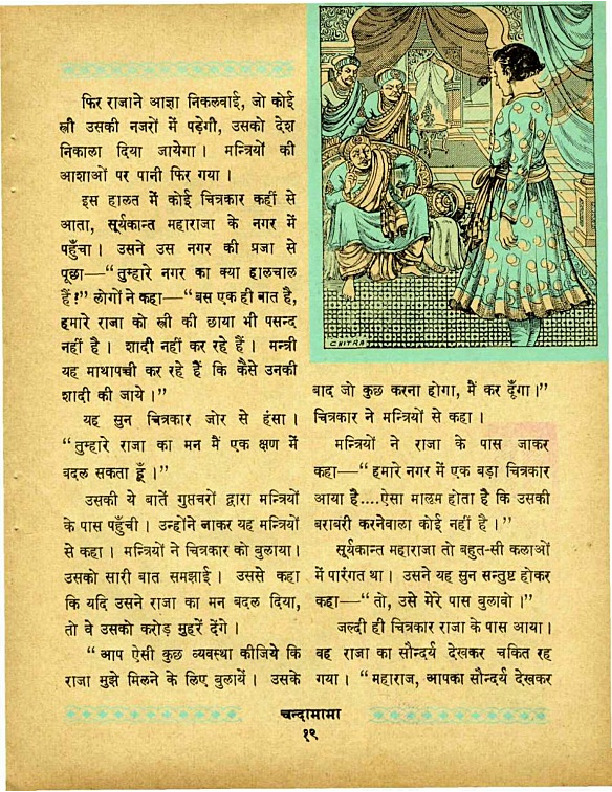 फिर राजाने आज्ञा निकलवाई, जो कोई
स्त्री उसकी नजरों में पड़ेगी, उसको देश
निकाला दिया जायेगा। मन्त्रियों की
आशाओं पर पानी फिर गया।
इस हालत में कोई चित्रकार कहीं से
आता, सूर्यकान्त महाराजा के नगर में
पहुँचा। उसने उस नगर की प्रजा से
पूछा—“तुम्हारे नगर का क्या हालचाल
हैं?” लोगों ने कहा—“बस एक ही बात है,
हमारे राजा को स्त्री की छाया भी पसन्द
नहीं है। शादी नहीं कर रहे हैं। मन्त्री
यह माथापच्ची कर रहे हैं कि कैसे उनकी
शादी की जाये।”
यह सुन चित्रकार जोर से हंसा।
“तुम्हारे राजा का मन मैं एक क्षण में
बदल सकता हूँ।”
उसकी ये बातें गुप्तचरों द्वारा मन्त्रियों
के पास पहुँची। उन्होंने जाकर यह मन्त्रियों
से कहा। मन्त्रियों ने चित्रकार को बुलाया।
उसको सारी बात समझाई। उससे कहा
कि यदि उसने राजा का मन बदल दिया,
तो वे उसको करोड़ मुहरें देंगे।
“आप ऐसी कुछ व्यवस्था कीजिये कि
राजा मुझे मिलने के लिए बुलायें। उसके
CHITRA
बाद जो कुछ करना होगा, मैं कर दूँगा।”
चित्रकार ने मन्त्रियों से कहा।
मन्त्रियों ने राजा के पास जाकर
कहा—“हमारे नगर में एक बड़ा चित्रकार
आया है....ऐसा मालूम होता है कि उसकी
बराबरी करनेवाला कोई नहीं है।”
सूर्यकान्त महाराजा तो बहुत-सी कलाओं
में पारंगत था। उसने यह सुन सन्तुष्ट होकर
कहा—“तो, उसे मेरे पास बुलावो।”
जल्दी ही चित्रकार राजा के पास आया।
वह राजा का सौन्दर्य देखकर चकित रह
गया। “महाराज, आपका सौन्दर्य देखकर
चन्दामामा
१९